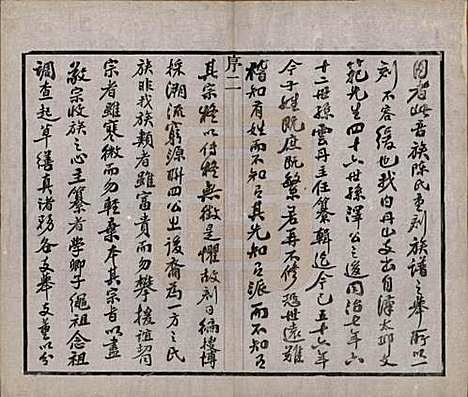 因者此吾族陳氏重刻族譜之舉所以一
刻不容緩也我白丹山支出自漢太邱文
範先生四十六世孫澤公之後同治七年六
十二世孫雲丹主任纂輯迄今已五十六年
今子姓既庶既繁若再不修恐世遠難
稽知有姓而不知吾其先知吾派而不知吾
序二
其宗將以侍終無徵是懼故刻日編摟博
採溯流窮源聯四公之後裔為一方之氏
族非我族類者雖富貴而勿攀援誼切
宗者雖寒微而勿輕棄本其宗旨以盡
敬宗收族之心主纂者學卿子繩祖念祖
調查起草繕真諸務各支舉支董以分